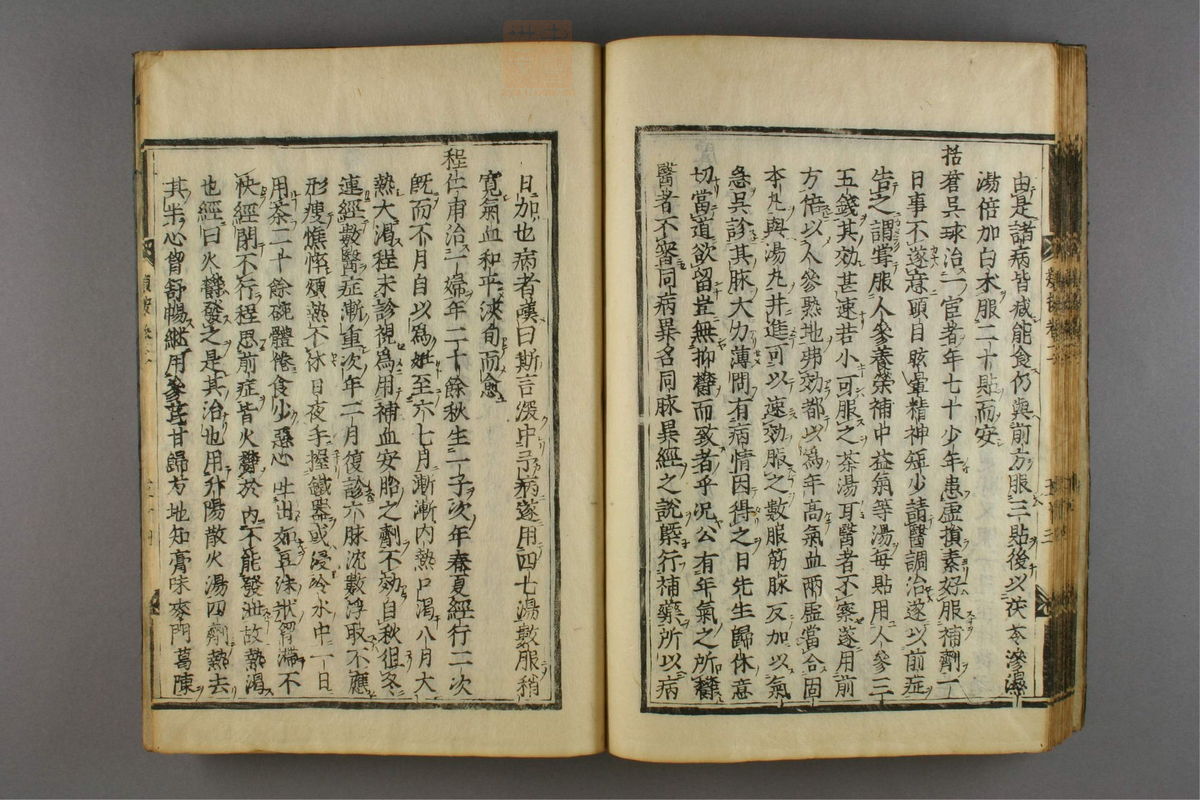 由是諸病皆減能食仍與前方服三貼後以茯苓滲濕
湯倍加白朮服二十貼而安
括蒼吳球治一宦者年七十少年患虛損素好服補劑一
日事不遂意頭目眩暈精神短少請醫調治遂以前症
告之謂甞服人參養榮補中益氣等湯每貼用人參三
五錢其効甚速若小可服之茶湯耳醫者不察遂用前
方倍以人參熟地弗効都以為年高氣血兩虛當合固
本丸與湯丸并進可以速効服之數服筋脉反加以氣
急吳診其脉大力薄問有病情因得之曰先生歸休意
切當道欲留豈無抑欝而致者乎況公有年氣之所欝
醫者不審同病異名同脉異經之說槩行補藥所以病
日加也病者嘆曰斯言深中予病遂用四七湯數服稍
寬氣血和平浹旬而愈
程仁甫治一婦年二十餘秋生一子次年春夏經行二次
既而不月自以為姙至六七月漸漸內熱口渴八月大
熱大渴程未診視為用補血安胎之劑不効自秋徂冬
連經數醫症漸重次年二月復診六脉沈數浮取不應
形瘦憔悴煩熱不休日夜手握鐵器或浸冷水中一日
用茶二十餘碗體倦食少惡心吐出如豆沫狀胷滯不
快經閉不行程思前症皆火欝於內不能發泄故熱渴
也經曰火欝發之是其治也用升陽散火湯四劑熱去
其半心胷舒暢繼用參芪甘歸芍地知膏味麥門葛陳